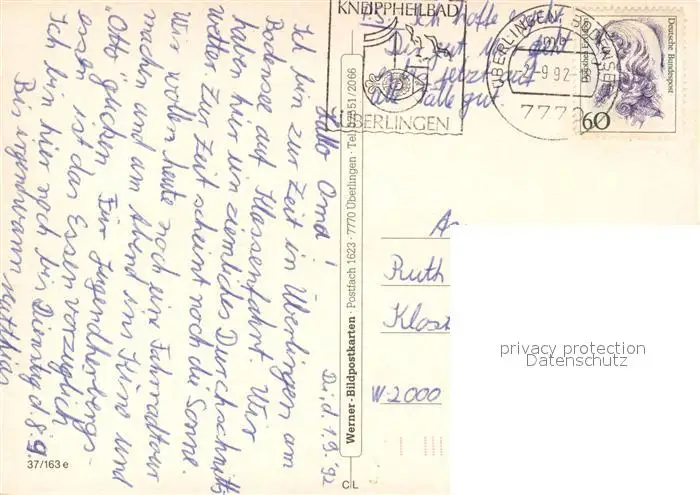 Di, d 1.9.'92
Hallo Oma!
Ich bin zur Zeit in Überlingen am
Bodensee auf Klassenfahrt. Wir
haben hier ein ziemliches Durchschnitts
wetter. Zur Zeit scheint noch die Sonne.
Wir wollen heute noch eine Fahrradtour
machen und am Abend ins Kino und
"Otto" gucken. Für Jugendherbergs-
essen ist das Essen vorzüglich
Ich bin hier noch bis Dienstag d. 8.9.
Bis irgendwann Matthias
P.S.: Ich hoffe es geht
Dir gut und geht
jetzt auf
alle Fälle gut
KNEIPPHEILBAD
ÜBERLINGEN
ÜBERLINGEN, BODENSEE
-9.92
7770
Deutsche Bundespost
60
Werner-Bildpostkarten · Postfach 1623 · 7770 Überlingen · Tel. 07551/2066
Ruth
Klost
W-2000
privacy protection
Datenschutz
37/163 e
C L